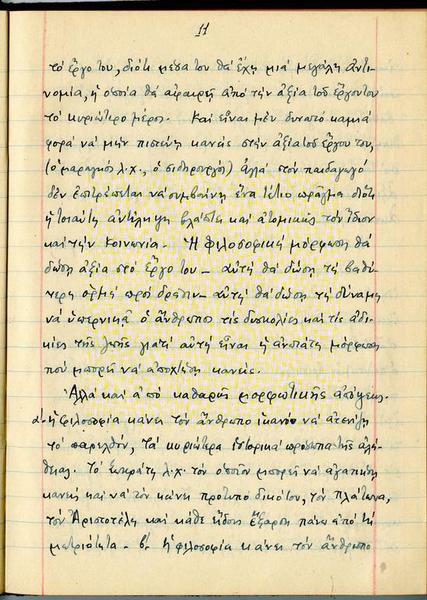 11
τὸ ἔργο του, διότι μέσα του θὰ ἔχη μιὰ μεγάλη ἀντι-
νομία, ἡ ὁποία θὰ ἀφαιρῆ ἀπὸ τὴν ἀξία τοῦ ἔργου του
τὸ κυριώτερο μέρος. Καὶ εἶναι μὲν δυνατὸ καμιὰ
φορὰ νὰ μὴν πιστεύη κανεὶς στὴν ἀξία τοῦ ἔργου του,
(ὁ μαραγκὸς λ.χ., ὁ σιδηρουργὸς) ἀλλὰ στὸν παιδαγωγὸ
δὲν ἐπιτρέπεται νὰ συμβαίνη ἕνα τέτοιο πρᾶγμα διότι
ἡ τοιαύτη ἀντίληψη βλάπτει καὶ ἀτομικῶς τὸν ἴδιον
καὶ τὴν κοινωνία. Ἡ φιλοσοφικὴ μόρφωση θὰ
δώση ἀξία στὸ ἔργο του – αὐτὴ θὰ δώση τὴ βαθύ-
τερη ὁρμὴ πρὸς δράσιν – αὐτὴ θὰ δώση τὴ δύναμη
νὰ ὑπερνικᾶ ὁ ἄνθρωπος τὶς δυσκολίες καὶ τὶς ἀδι-
κίες τῆς ζωῆς γιατὶ αὐτὴ εἶναι ἡ ἀνωτάτη μόρφωση
ποὺ μπορεῖ νὰ ἀποχτήση κανείς.
Ἀλλὰ καὶ ἀπὸ καθαρῆς μορφωτικῆς ἀπόψεως.
α'. ἡ φιλοσοφία κάνει τὸν ἄνθρωπο ἱκανὸν νὰ ἀτενίζη
τὸ παρελθόν, τὰ κυριώτερα ἱστορικὰ πρόσωπα τῆς ἀλή-
θειας. Τὸ Σωκράτη λ.χ. τὸν ὁποῖον μπορεῖ νὰ ἀγαπήση
κανεὶς καὶ νὰ τὸν κάνη πρότυπο δικαίου, τὸν Πλάτωνα,
τὸν Ἀριστοτέλη καὶ κάθε εἴδους ἔξαρση πάνω ἀπὸ τὴ
μετριότητα. β'. ἡ φιλοσοφία κάνει τὸν ἄνθρωπο